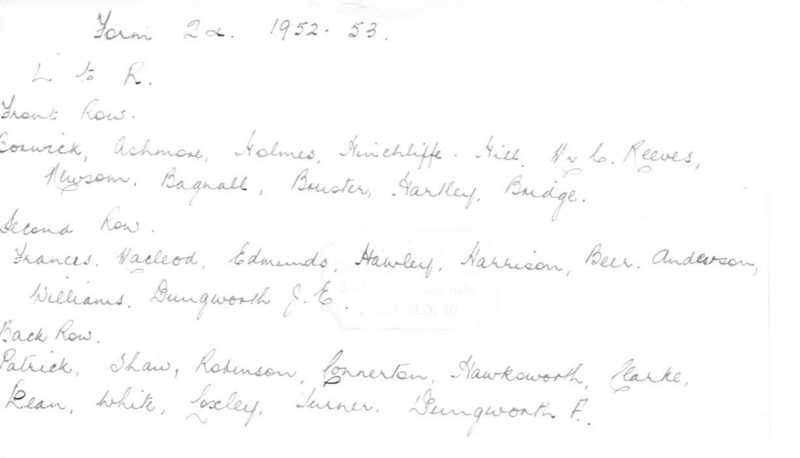 Form 2α. 1952-53.
L to R.
Front Row.
Corwick, Ashmore, Holmes, Hinchliffe. Hill, Mr C. Reeves,
Newsom, Bagnall, Bruster, Hartley, Bridge.
Second Row.
Frances. Macleod, Edmunds, Hawley, Harrison, Beer. Anderson,
Williams. Dungworth J. E.
Back Row.
Patrick, Shaw, Robinson, Connerton, Hawksworth, Clarke,
Dean, White, Loxley, Turner. Dungworth F.